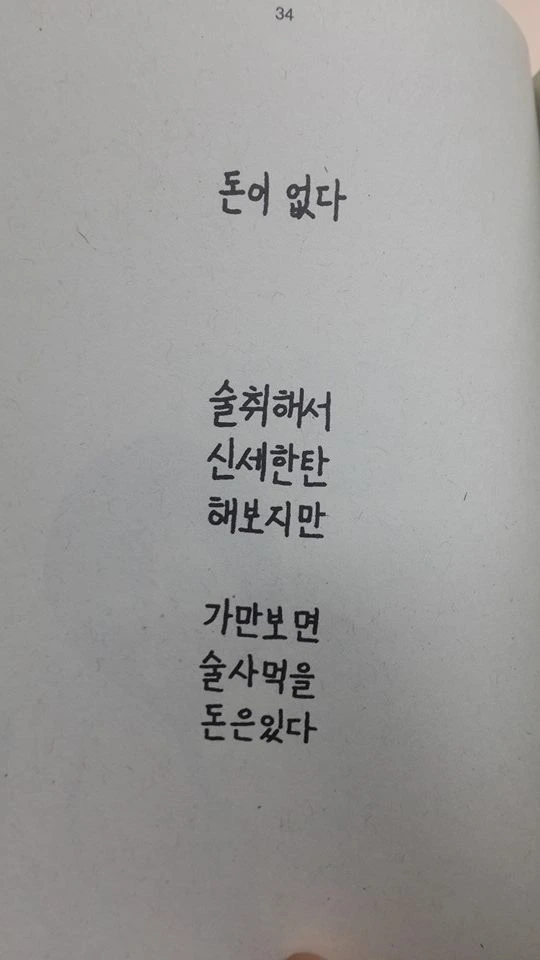 34
돈이 없다
술취해서
신세한탄
해보지만
가만보면
술사먹을
돈은있다